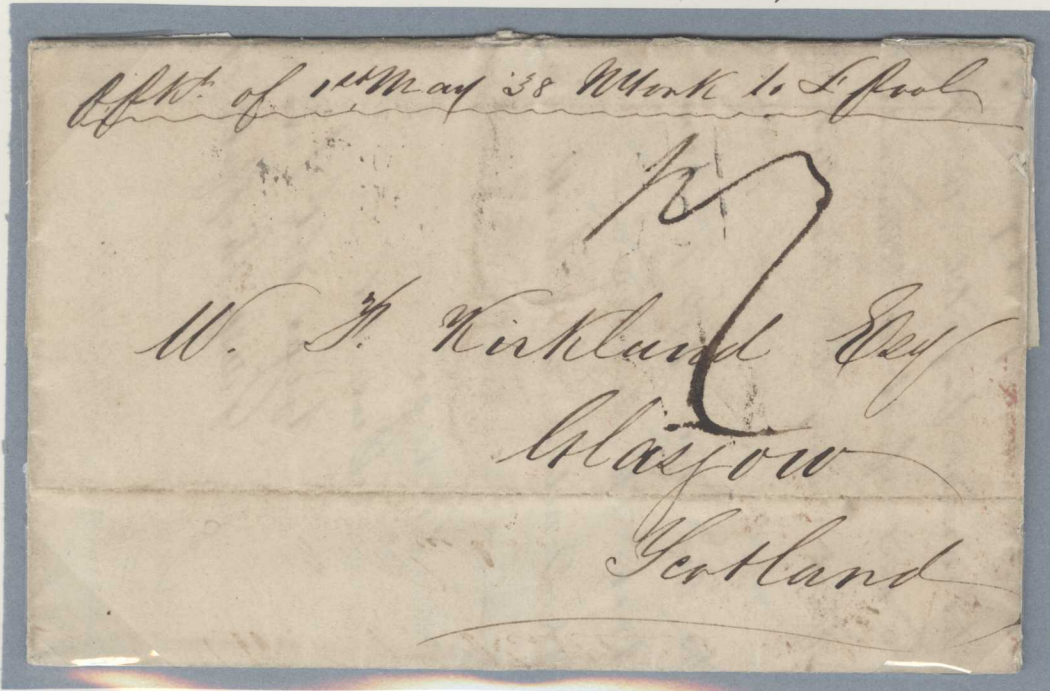 P Pkt of 1st May 38 NYork to L'pool
W. F. Kirkland Esq
Glasgow
Scotland